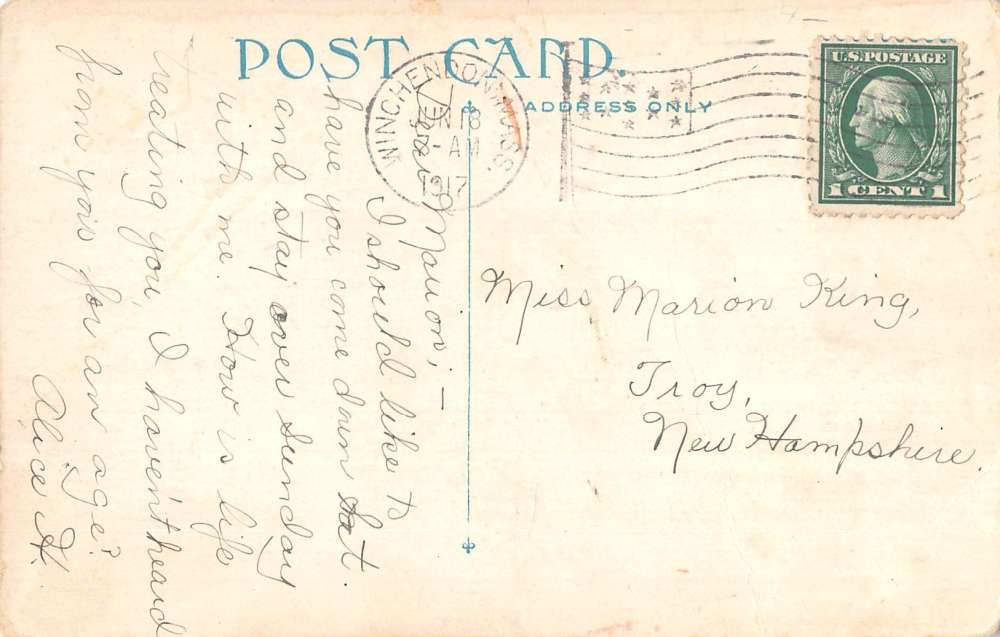 POST CARD.
ADDRESS ONLY
WINCHENDON, MASS.
18
AM
1917
U.S. POSTAGE
1 CENT 1
Marion; —
I should like to
have you come down Sat.
and stay over Sunday
with me. How is life
treating you, I haven't heard
from you for an age?
Alice H.
Miss Marion King,
Troy,
New Hampshire.